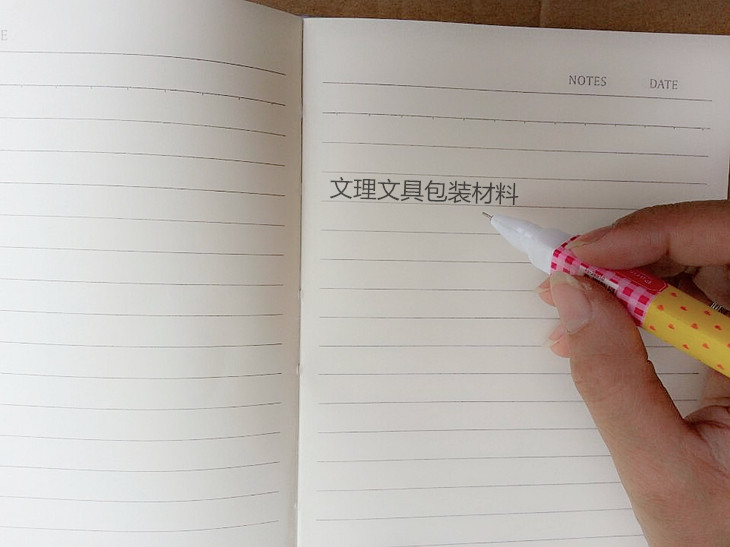 E
NOTES DATE
文理文具包装材料